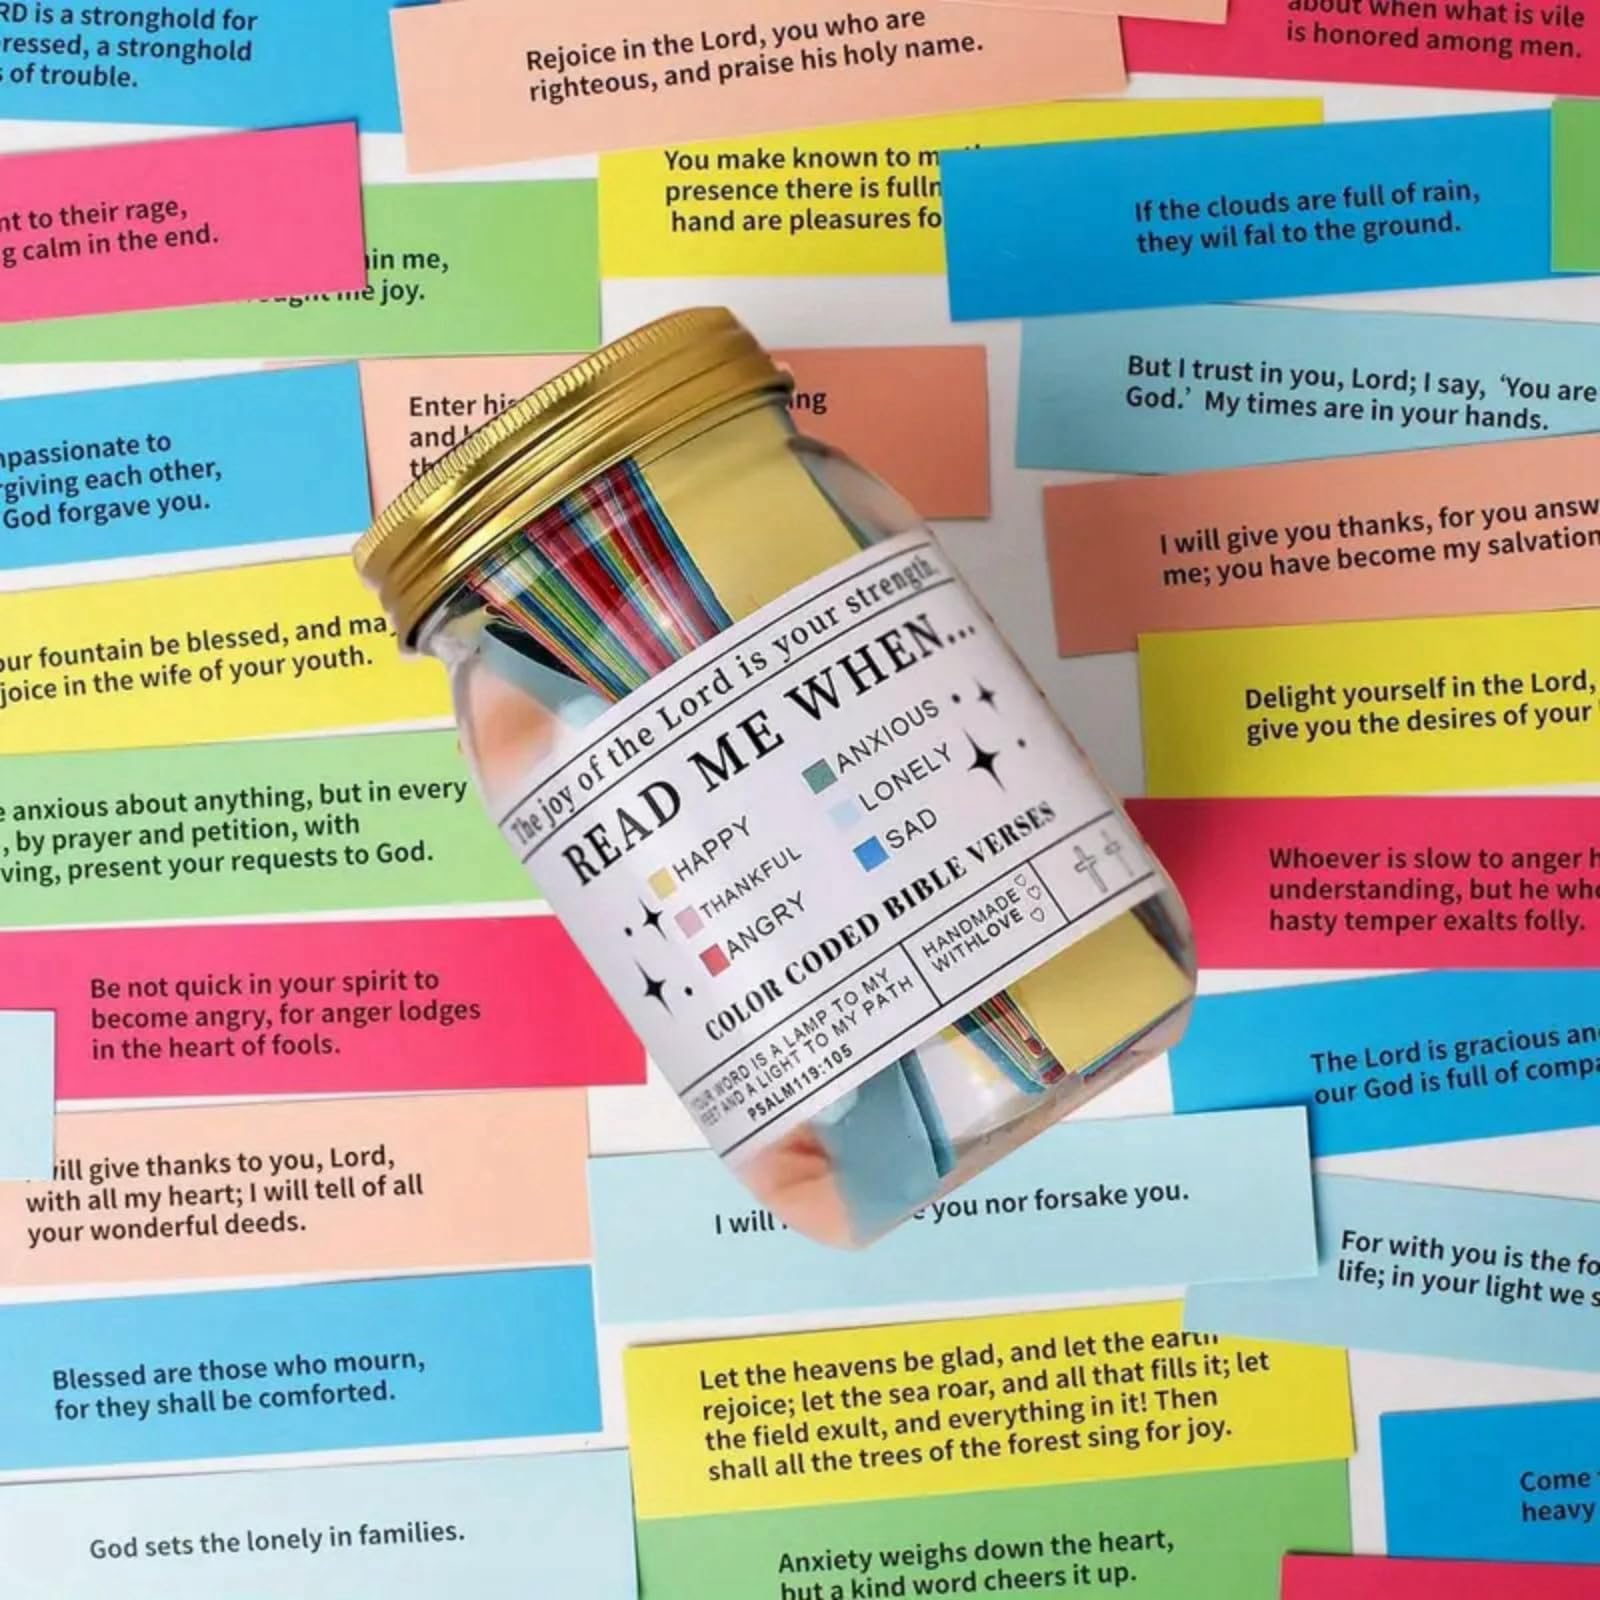 RD is a stronghold for
ressed, a stronghold
of trouble.
Rejoice in the Lord, you who are
righteous, and praise his holy name.
about when what is vile
is honored among men.
nt to their rage,
g calm in the end.
in me,
me joy.
You make known to m
presence there is fulln
hand are pleasures fo
If the clouds are full of rain,
they wil fal to the ground.
But I trust in you, Lord; I say, ‘You are
God.’ My times are in your hands.
Enter his
and
th
ing
mpassionate to
rgiving each other,
God forgave you.
I will give you thanks, for you answ
me; you have become my salvation
our fountain be blessed, and may
joice in the wife of your youth.
Delight yourself in the Lord,
give you the desires of your
The joy of the Lord is your strength.
READ ME WHEN...
HAPPY
THANKFUL
ANGRY
ANXIOUS
LONELY
SAD
COLOR CODED BIBLE VERSES
YOUR WORD IS A LAMP TO MY
FEET AND A LIGHT TO MY PATH
PSALM119:105
HANDMADE
WITHLOVE
e anxious about anything, but in every
, by prayer and petition, with
ving, present your requests to God.
Whoever is slow to anger h
understanding, but he who
hasty temper exalts folly.
Be not quick in your spirit to
become angry, for anger lodges
in the heart of fools.
The Lord is gracious an
our God is full of compa
will give thanks to you, Lord,
with all my heart; I will tell of all
your wonderful deeds.
I will
you nor forsake you.
For with you is the fo
life; in your light we s
Blessed are those who mourn,
for they shall be comforted.
Let the heavens be glad, and let the earth
rejoice; let the sea roar, and all that fills it; let
the field exult, and everything in it! Then
shall all the trees of the forest sing for joy.
Come
heavy
God sets the lonely in families.
Anxiety weighs down the heart,
but a kind word cheers it up.